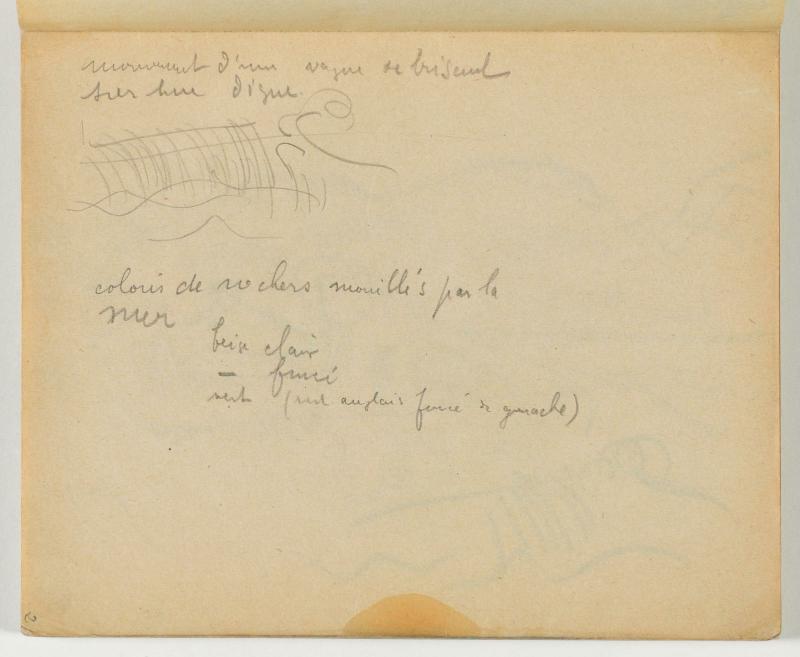 mouvement d'une vague se brisant
sur une digue.
coloris de rochers mouillés par la
mer
beige clair
— foncé
vert (vert anglais foncé de gouache)